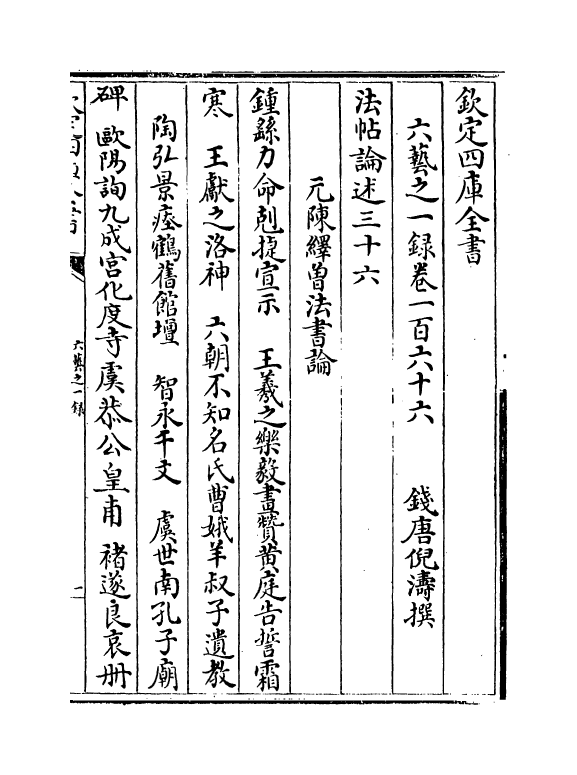 欽定四庫全書
六藝之一録卷一百六十六　　錢唐倪濤撰
法帖論述三十六
元陳繹曽法書論
鍾繇力命剋捷宣示　王羲之樂毅畫贊黄庭告誓霜
寒　王獻之洛神　六朝不知名氏曹娥羊叔子遺教
陶弘景瘞鶴舊館壇　智永千文　虞世南孔子廟
碑　歐陽詢九成宫化度寺虞恭公皇甫　褚遂良哀册
六藝之一録